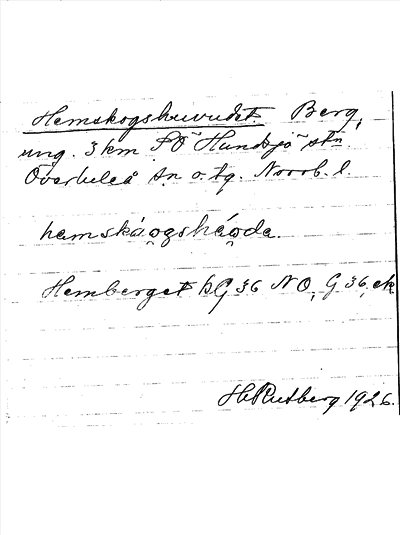 Hemskogshuvudet. Berg,
ung. 3 km SÖ Hundsjö stn
Överluleå sn o. tg. Norrb. l.
hemskáogsháoda.
Hemberget bG 36 NO, G 36, ek
H Rutberg 1926.